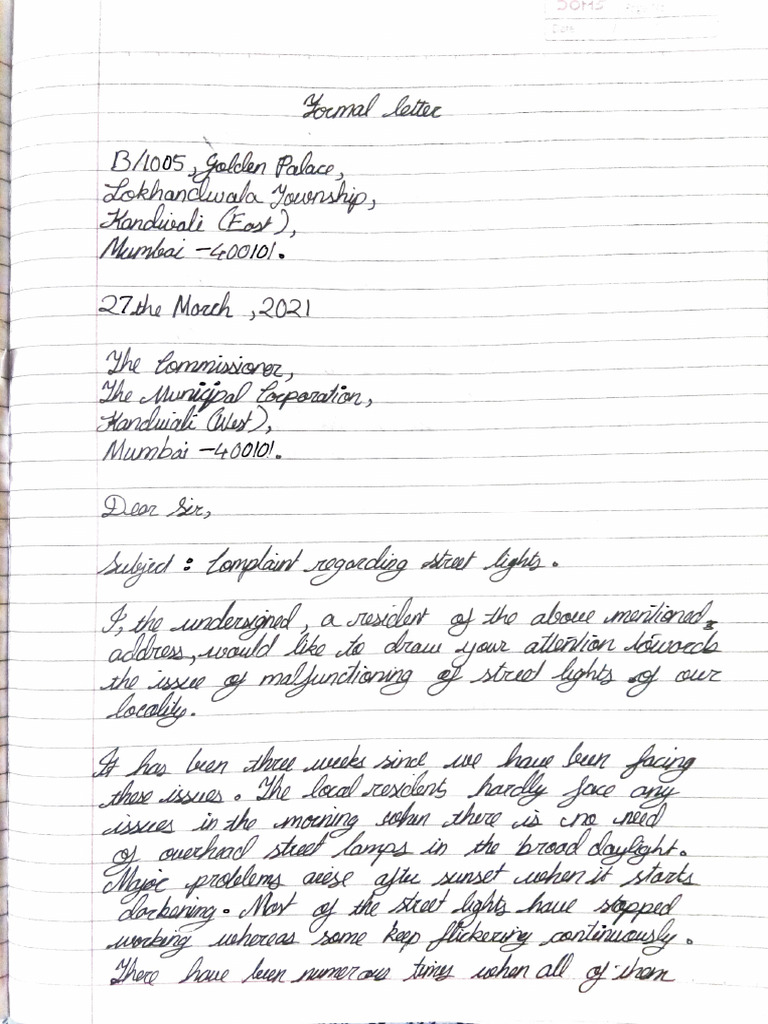 DOMS
Date
Formal letter
B/1005, Golden Palace,
Lokhandwala Township,
Kandivali (East),
Mumbai - 400101.
27the March, 2021
The Commissioner,
The Municipal Corporation,
Kandivali (West),
Mumbai - 400101.
Dear Sir,
Subject : Complaint regarding street lights.
I, the undersigned, a resident of the above mentioned
address, would like to draw your attention towards
the issue of malfunctioning of street lights of our
locality.
It has been three weeks since we have been facing
these issues. The local residents hardly face any
issues in the morning when there is no need
of overhead street lamps in the broad daylight.
Major problems arise after sunset when it starts
darkening. Most of the street lights have stopped
working whereas some keep flickering continuously.
There have been numerous times when all of them